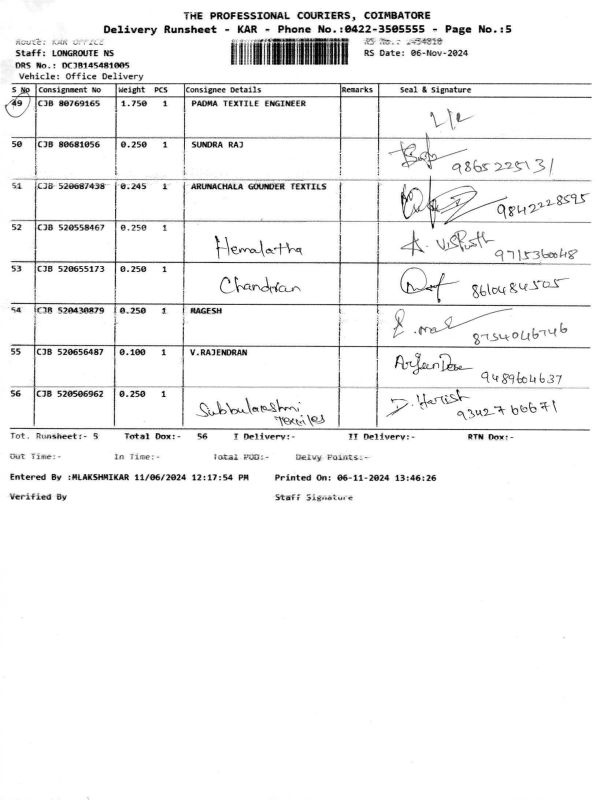 THE PROFESSIONAL COURIERS, COIMBATORE
Delivery Runsheet - KAR - Phone No.:0422-3505555 - Page No.:5
Route: KAR OFFICE
RS No.: 2454810
Staff: LONGROUTE NS
RS Date: 06-Nov-2024
DRS No.: DCJB145481005
Vehicle: Office Delivery
S No Consignment No Weight PCS Consignee Details Remarks Seal & Signature
49 CJB 80769165 1.750 1 PADMA TEXTILE ENGINEER
50 CJB 80681056 0.250 1 SUNDRA RAJ 9865225131
51 CJB 520687438 0.245 1 ARUNACHALA GOUNDER TEXTILS 9842228595
52 CJB 520558467 0.250 1 Hemalatha 9715360048
53 CJB 520655173 0.250 1 Chandran 8610484505
54 CJB 520430879 0.250 1 RAGESH 8754046746
55 CJB 520656487 0.100 1 V.RAJENDRAN 9489604637
56 CJB 520506962 0.250 1 Subbulakshmi Textiles D. Harish 9342766671
Tot. Runsheet:- 5 Total Dox:- 56 I Delivery:- II Delivery:- RTN Dox:-
Out Time:- In Time:- Total POD:- Delvy Points:-
Entered By :MLAKSHMIKAR 11/06/2024 12:17:54 PM Printed On: 06-11-2024 13:46:26
Verified By Staff Signature